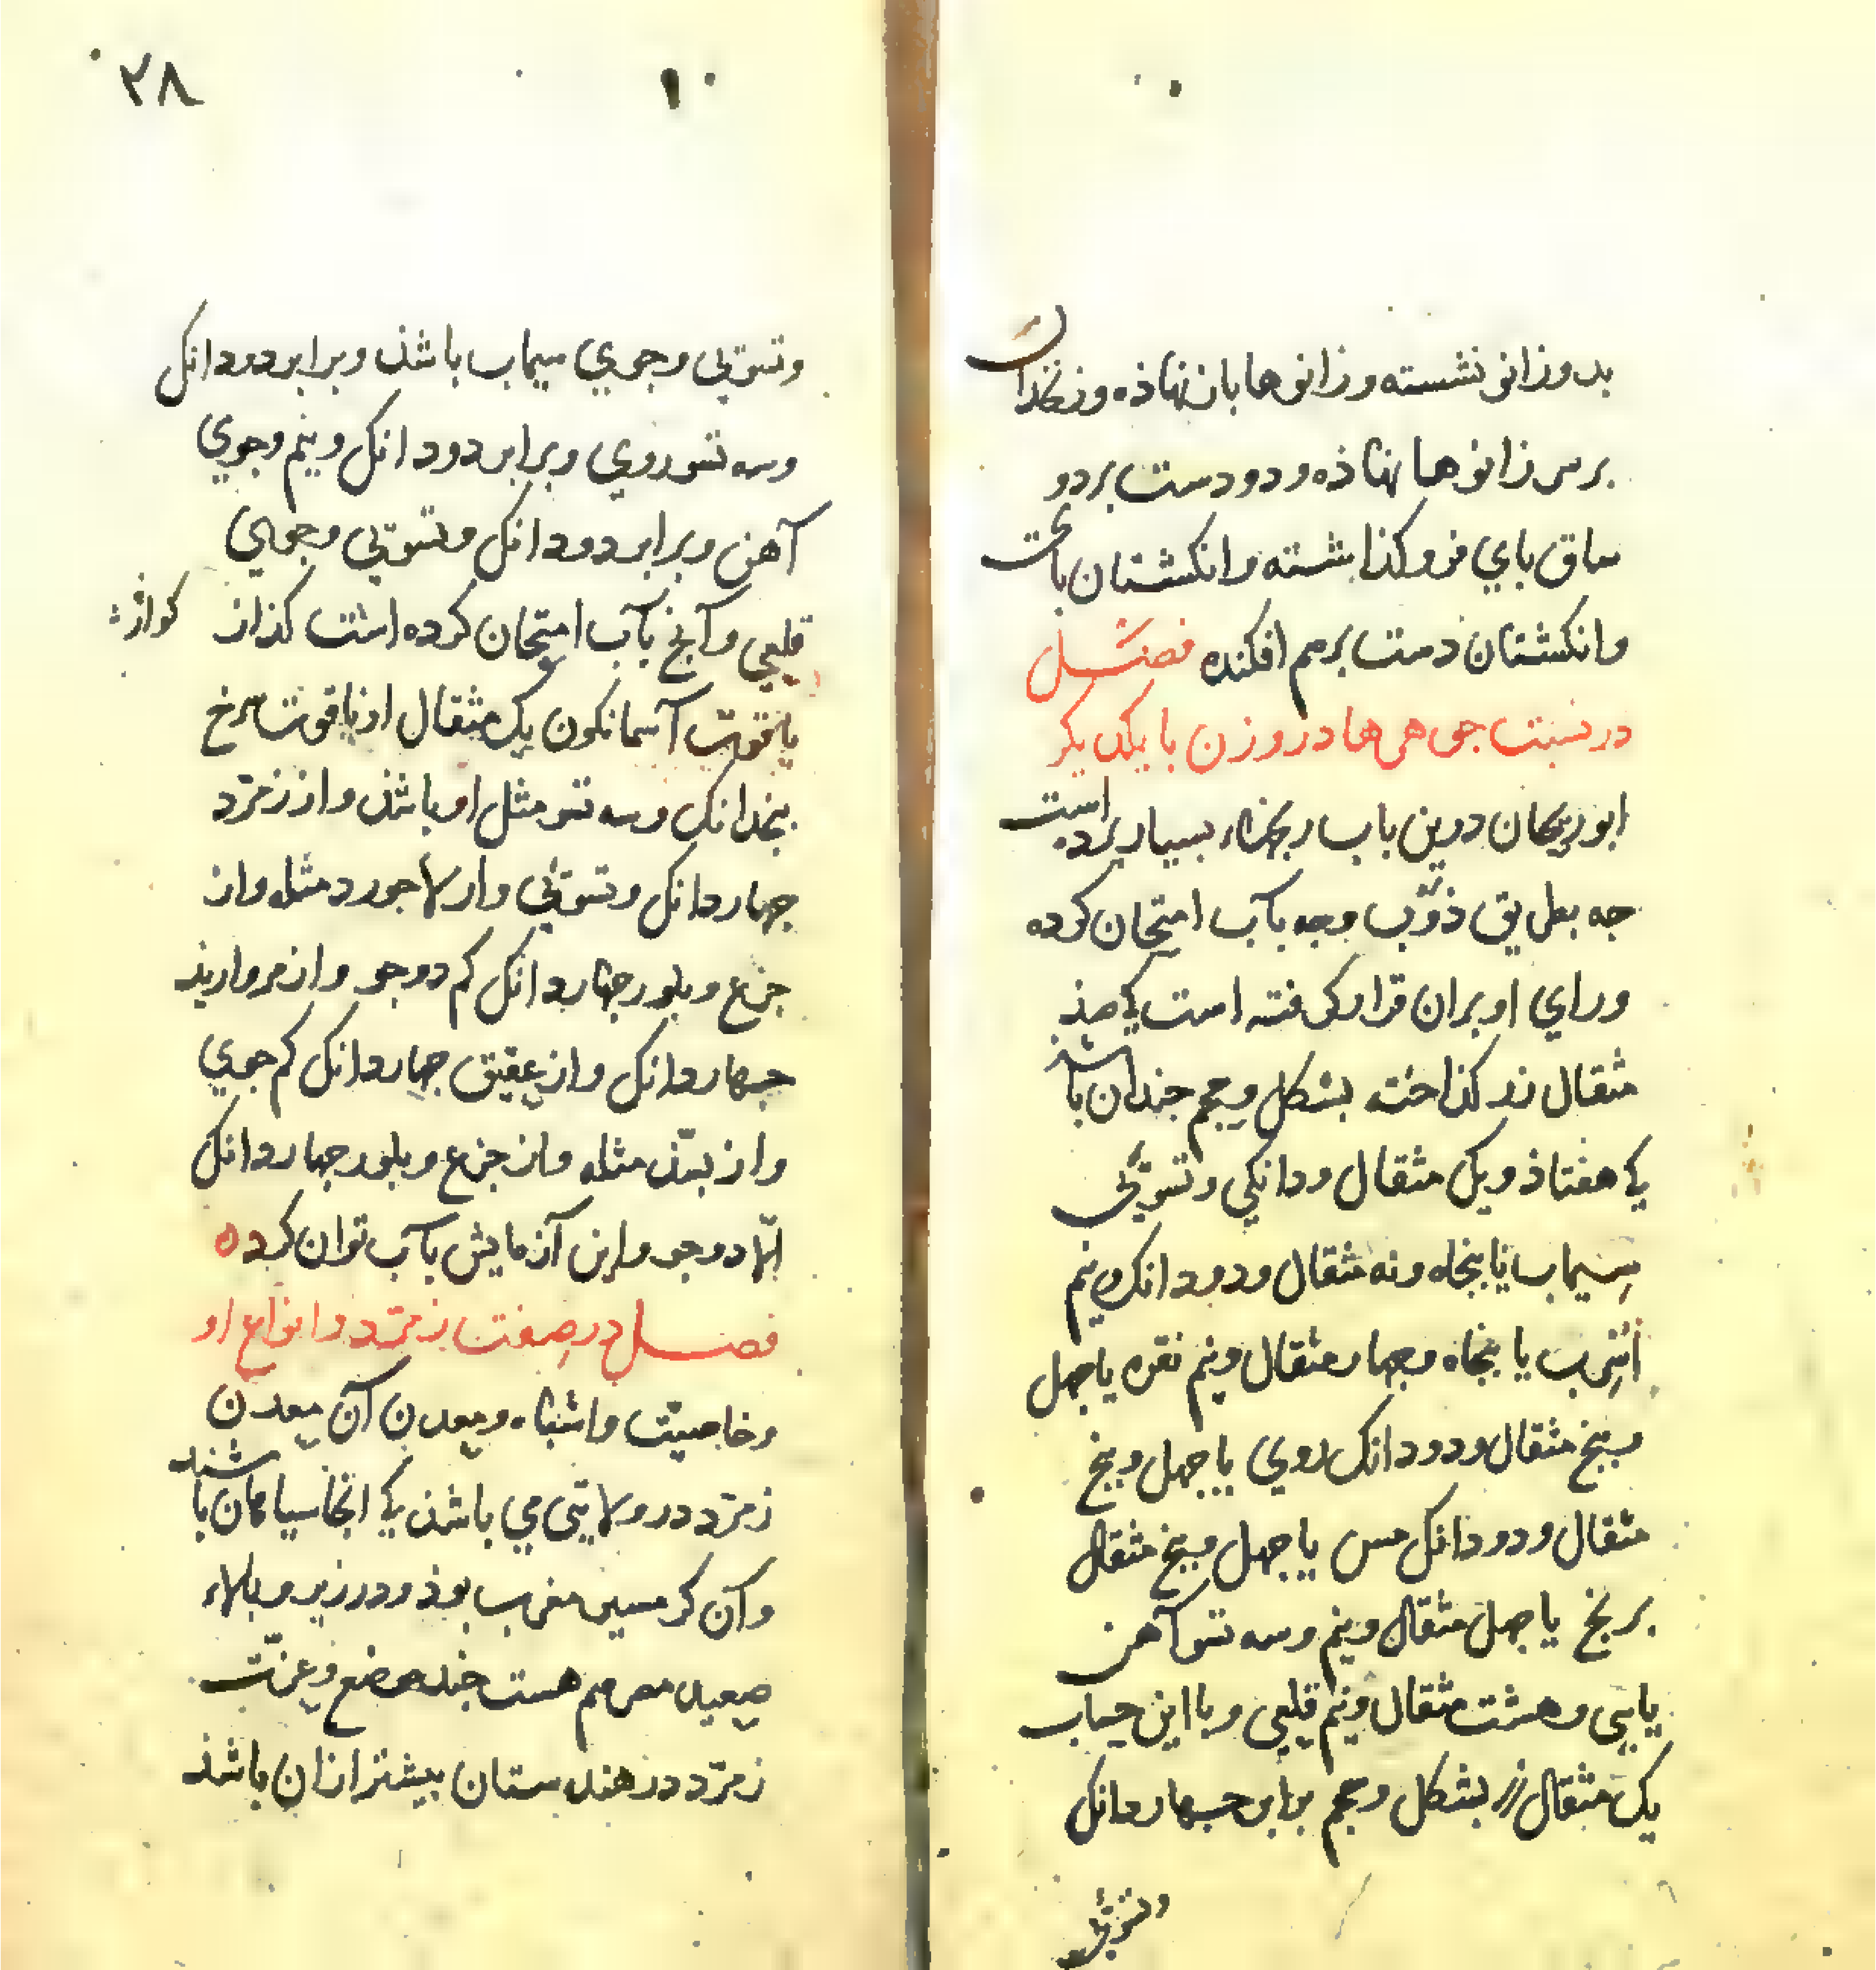 بدو زانو نشسته و زانوها بان نهاذه و زنخدان
بر سر زانوها نهاذه و دو دست بر دو
ساق باي فرو كذاشته و انكشتان باي
و انكشتان دست برهم افكنده فصل
در نسبت جوهرها در وزن با يكديكر
ابو ريحان درين باب رنجهاء بسيار برده است
جه بطريق ذوب وجه بآب امتحان كرده
وراي او بران قرار كرفته است كي صذ
مثقال زر كذاخته بشكل و حجم جندان باشذ
كي هفتاذ و يك مثقال و دانكي و تسوئي
سيماب يا بنجاه و نه مثقال و دو دانك و نيم
اسرب يا بنجاه و جهار مثقال و نيم نقره يا جهل
و بنج مثقال و دو دانك روي يا جهل و بنج
مثقال و دو دانك مس يا جهل و بنج مثقال
برنج يا جهل مثقال و نيم و سه تسو آهن
يا سي و هشت مثقال و نيم قلعي و با اين حساب
يك مثقال زر بشكل و حجم برابر جهار دانك
و تسوئي
٣٨
١٠
و تسوئي و جوي سيماب باشذ و برابر دو دانك
و سه تسو روي و برابر دو دانك و نيم و جوي
آهن و برابر دو دانك و تسوئي و جوي
قلعي و آنج بآب امتحان كرده است كذاز
ياقوت آسمانكون يك مثقال از ياقوت سرخ
بنجدانك و سه تسو مثل او باشذ و از زمرّد
جهار دانك و تسوئي و از لاجورد مثله و از
جزع و بلور جهار دانك كم دو جو و از مرواريذ
جهار دانك و از عقيق جهار دانك كم جوي
و از بسّذ مثله و از جزع و بلور جهار دانك
الّا دو جو و اين آزمايش بآب توان كرده
فصل در صفت زمرّد و انواع او
و خاصيّت و اشباه و معدن آن معدن
زمرّد در ولايتي مي باشذ كي انجا سياهان باشند
و آن كرمسير مغرب بوذ و در زير و بالاء
صعيد مصر هم هست جند موضع و عزّت
زمرّد در هندستان بيشتر ازان باشذ